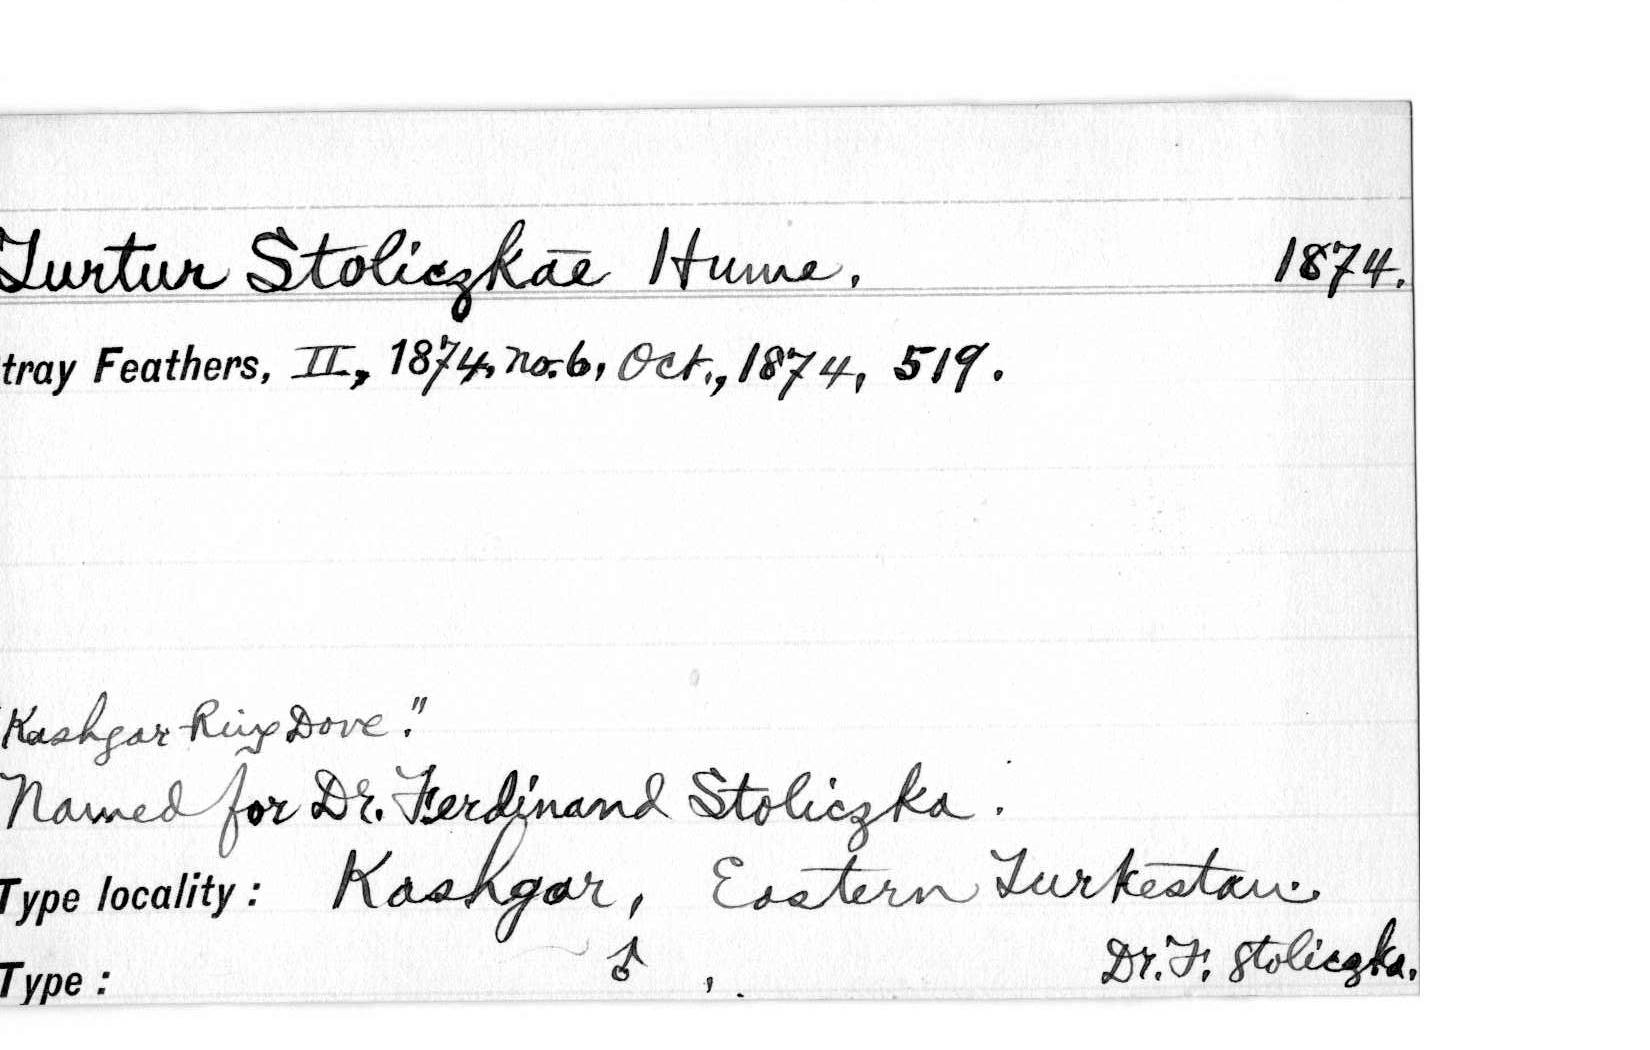 Turtur Stoliczkae Hume. 1874.
tray Feathers, II, 1874, no. 6, Oct., 1874, 519.
"Kashgar Ring Dove."
Named for Dr. Ferdinand Stoliczka.
Type locality: Kashgar, Eastern Turkestan.
Type: ♂, . Dr. F. Stoliczka.